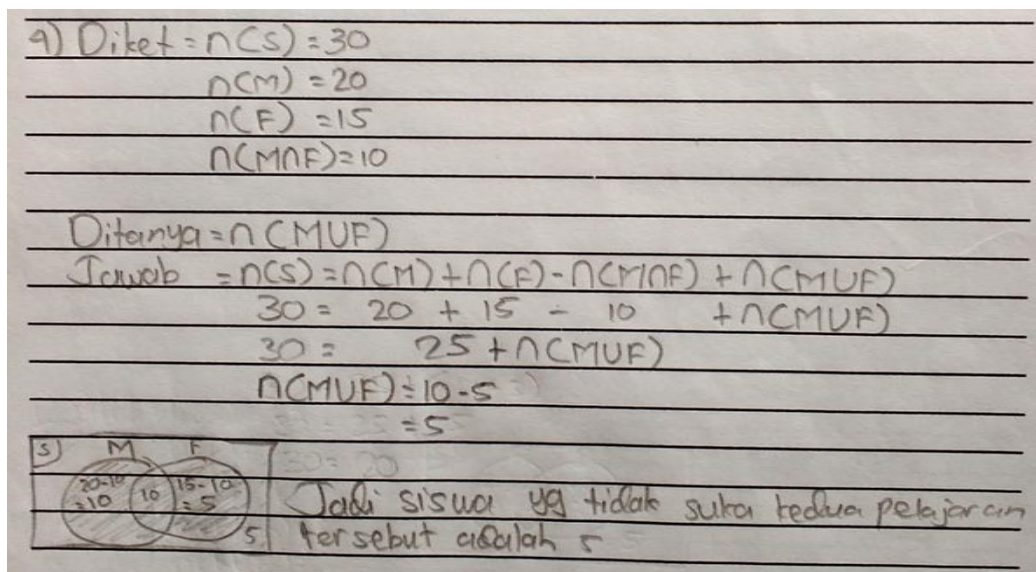 4) Diket = n(S) = 30
n(M) = 20
n(F) = 15
n(M∩F) = 10
Ditanya = n(MUF)
Jawab = n(S) = n(M) + n(F) - n(M∩F) + n(MUF)
30 = 20 + 15 - 10 + n(MUF)
30 = 25 + n(MUF)
n(MUF) = 10 - 5
= 5
S) M F
20-10 =10
10
15-10 = 5
5
Jadi siswa yg tidak suka kedua pelajaran
tersebut adalah 5